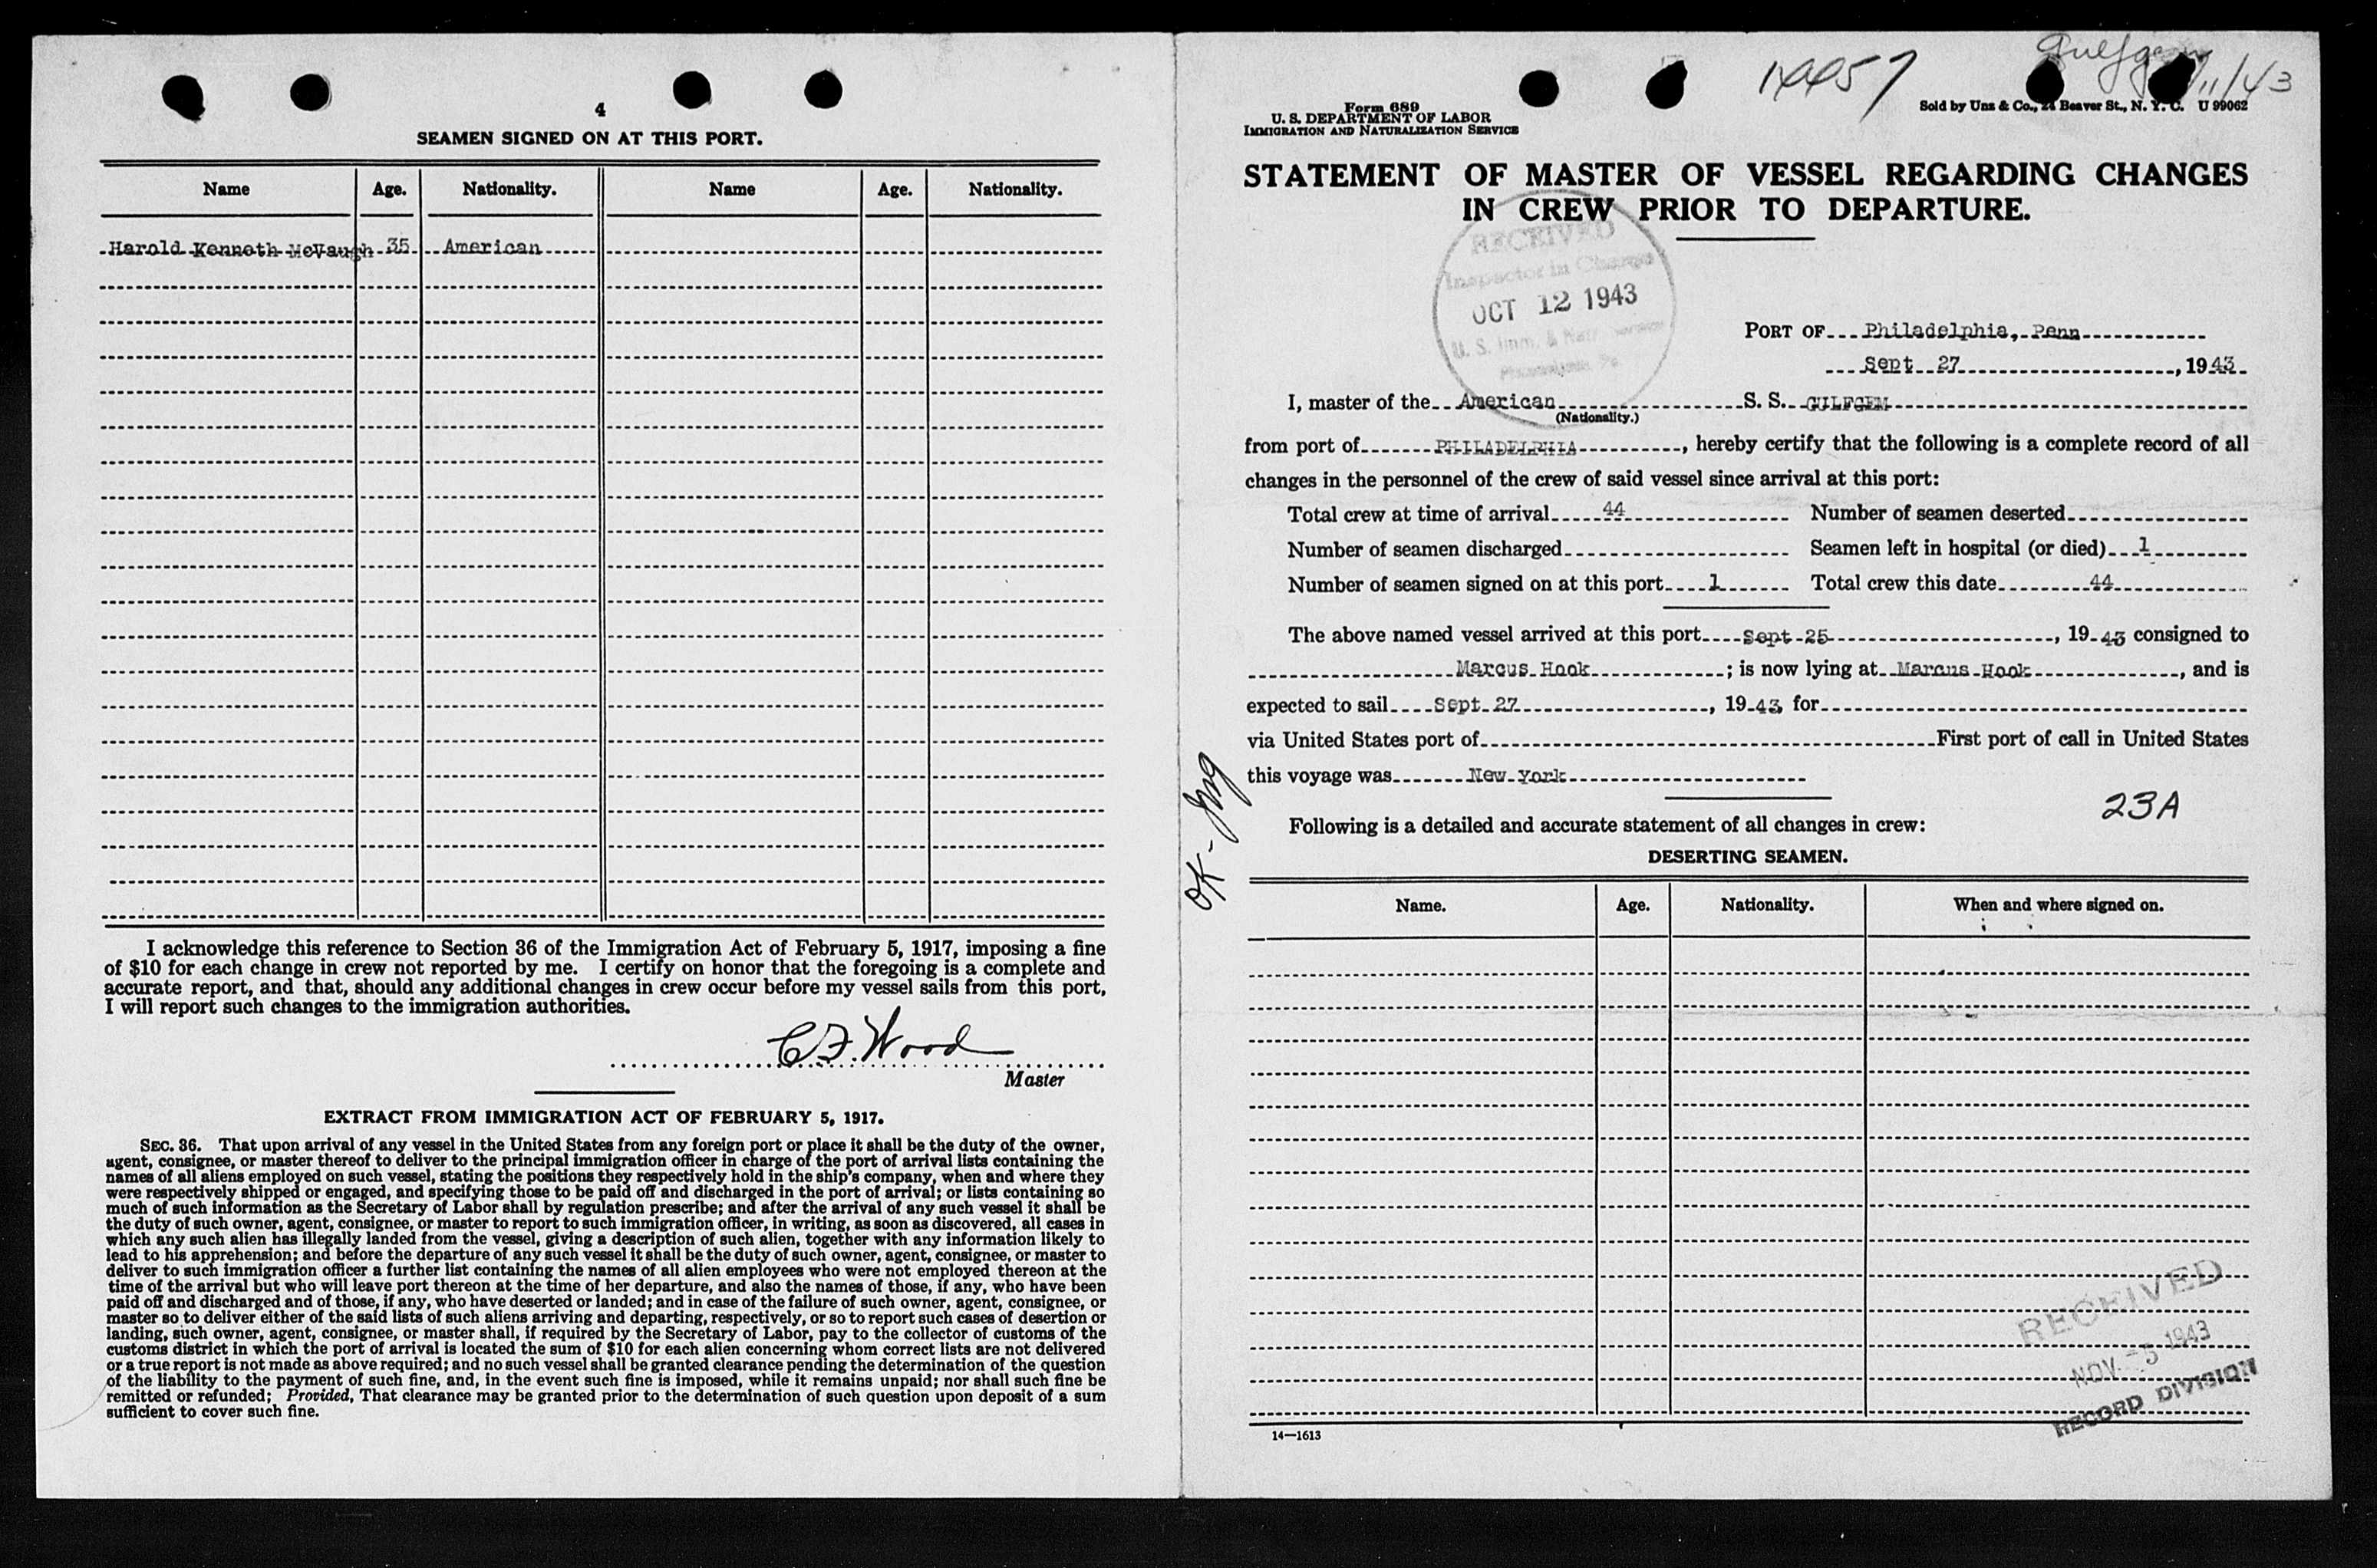 4
SEAMEN SIGNED ON AT THIS PORT.
Name Age. Nationality. Name Age. Nationality.
Harold Kenneth McVaugh 35 American
I acknowledge this reference to Section 36 of the Immigration Act of February 5, 1917, imposing a fine
of $10 for each change in crew not reported by me. I certify on honor that the foregoing is a complete and
accurate report, and that, should any additional changes in crew occur before my vessel sails from this port,
I will report such changes to the immigration authorities.
C F. Wood
Master
EXTRACT FROM IMMIGRATION ACT OF FEBRUARY 5, 1917.
SEC. 36. That upon arrival of any vessel in the United States from any foreign port or place it shall be the duty of the owner,
agent, consignee, or master thereof to deliver to the principal immigration officer in charge of the port of arrival lists containing the
names of all aliens employed on such vessel, stating the positions they respectively hold in the ship's company, when and where they
were respectively shipped or engaged, and specifying those to be paid off and discharged in the port of arrival; or lists containing so
much of such information as the Secretary of Labor shall by regulation prescribe; and after the arrival of any such vessel it shall be
the duty of such owner, agent, consignee, or master to report to such immigration officer, in writing, as soon as discovered, all cases in
which any such alien has illegally landed from the vessel, giving a description of such alien, together with any information likely to
lead to his apprehension; and before the departure of any such vessel it shall be the duty of such owner, agent, consignee, or master to
deliver to such immigration officer a further list containing the names of all alien employees who were not employed thereon at the
time of the arrival but who will leave port thereon at the time of her departure, and also the names of those, if any, who have been
paid off and discharged and of those, if any, who have deserted or landed; and in case of the failure of such owner, agent, consignee, or
master so to deliver either of the said lists of such aliens arriving and departing, respectively, or so to report such cases of desertion or
landing, such owner, agent, consignee, or master shall, if required by the Secretary of Labor, pay to the collector of customs of the
customs district in which the port of arrival is located the sum of $10 for each alien concerning whom correct lists are not delivered
or a true report is not made as above required; and no such vessel shall be granted clearance pending the determination of the question
of the liability to the payment of such fine, and, in the event such fine is imposed, while it remains unpaid; nor shall such fine be
remitted or refunded; Provided, That clearance may be granted prior to the determination of such question upon deposit of a sum
sufficient to cover such fine.
Gulfgem /11/43
Form 689
U. S. DEPARTMENT OF LABOR
IMMIGRATION AND NATURALIZATION SERVICE
Sold by Unz & Co., 24 Beaver St., N. Y. C. U 99062
STATEMENT OF MASTER OF VESSEL REGARDING CHANGES
IN CREW PRIOR TO DEPARTURE.
RECEIVED
Inspector in Charge
OCT 12 1943
U. S. Imm. & Natz Service
PORT OF Philadelphia, Penn
Sept 27, 1943
I, master of the American S. S. GULFGEM
(Nationality.)
from port of PHILADELPHIA, hereby certify that the following is a complete record of all
changes in the personnel of the crew of said vessel since arrival at this port:
Total crew at time of arrival 44 Number of seamen deserted
Number of seamen discharged Seamen left in hospital (or died) 1
Number of seamen signed on at this port 1 Total crew this date 44
The above named vessel arrived at this port Sept 25, 1943 consigned to
Marcus Hook; is now lying at Marcus Hook, and is
expected to sail Sept 27, 1943, for
via United States port of First port of call in United States
this voyage was New York
OK-
23A
Following is a detailed and accurate statement of all changes in crew:
DESERTING SEAMEN.
Name. Age. Nationality. When and where signed on.
RECEIVED
NOV -5 1943
RECORD DIVISION
14—1613